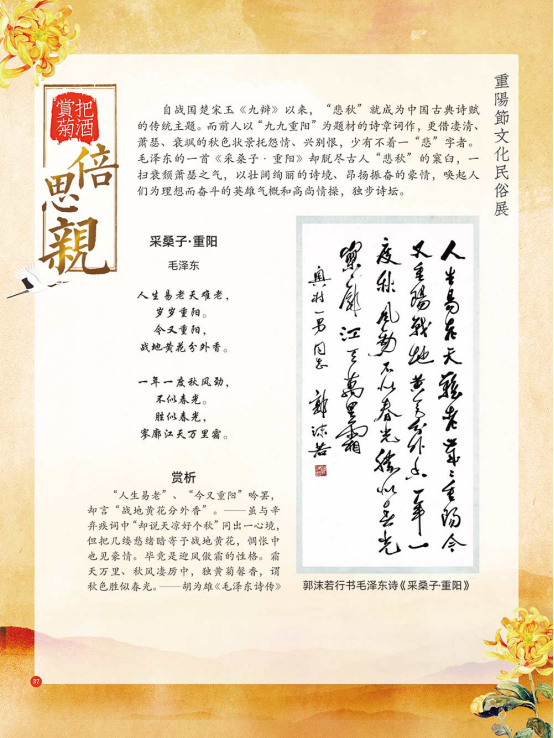 重陽節文化民俗展
把酒
賞菊
倍
思
親
自战国楚宋玉《九辩》以来，“悲秋”就成为中国古典诗赋
的传统主题。而前人以“九九重阳”为题材的诗章词作，更借凄清、
萧瑟、衰飒的秋色状景托怨情、兴别恨，少有不着一“悲”字者。
毛泽东的一首《采桑子·重阳》却脱尽古人“悲秋”的窠臼，一
扫衰颓萧瑟之气，以壮阔绚丽的诗境、昂扬振奋的豪情，唤起人
们为理想而奋斗的英雄气概和高尚情操，独步诗坛。
采桑子·重阳
毛泽东
人生易老天难老，
岁岁重阳。
今又重阳，
战地黄花分外香。
一年一度秋风劲，
不似春光。
胜似春光，
寥廓江天万里霜。
赏析
“人生易老”、“今又重阳”吟罢，
却言“战地黄花分外香”。——虽与辛
弃疾词中“却说天凉好个秋”同出一心境，
但把几缕愁绪暗寄于战地黄花，惆怅中
也见豪情。毕竟是迎风傲霜的性格。霜
天万里、秋风凄厉中，独黄菊馨香，谓
秋色胜似春光。——胡为雄《毛泽东诗传》
人生易老天難老歲＝重陽今
又重陽戰地黄花分外香一年一
度秋風勁不似春光勝似春光
寥廓江天萬里霜
郭沫若
郭沫若行书毛泽东诗《采桑子·重阳》
37